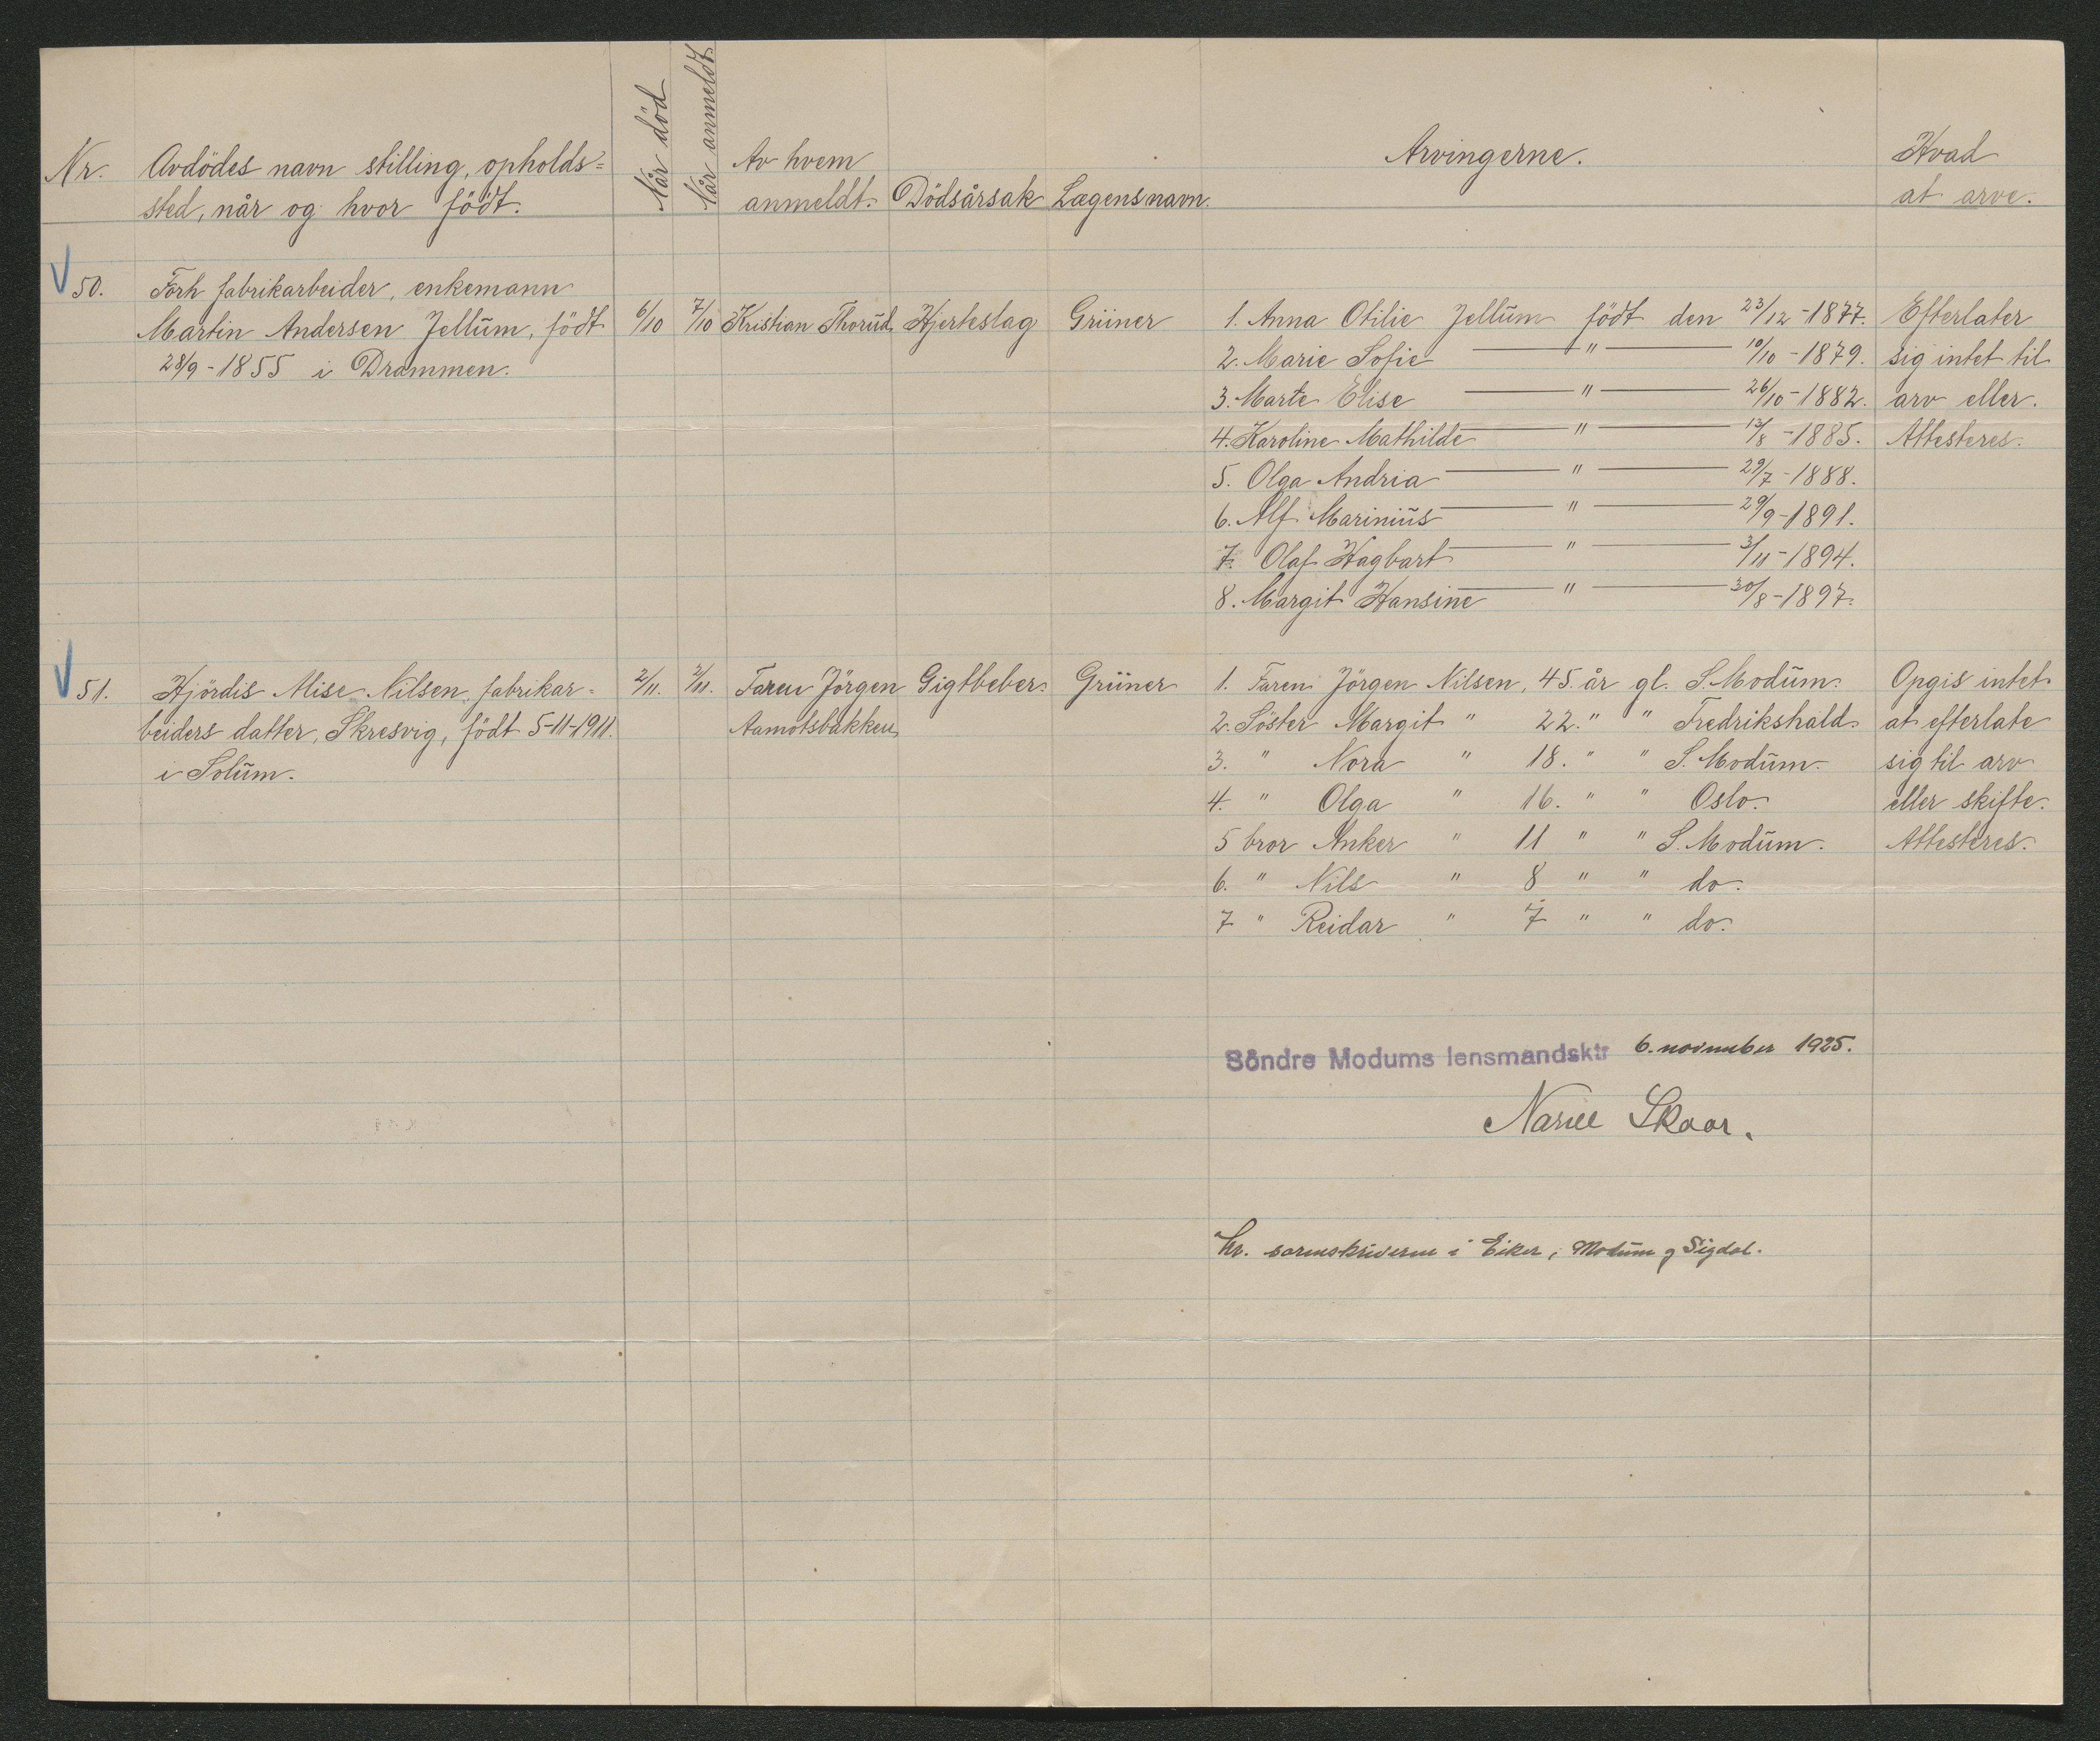 Nr.
Avdödes navn stilling, opholds=
sted, når og hvor födt.
Når död
Når anmeldt
Av hvem
anmeldt.
Dödsårsak
Lægens navn.
Arvingerne.
Hvad
at arve.
50.
Forh fabrikarbeider, enkemann
Martin Andersen Jellum, födt
28/9-1855 i Drammen.
6/10
7/10
Kristian Thorud
Hjerteslag
Grüner
1. Anna Otilie Jellum födt den 23/12-1877.
2. Marie Sofie — " — 10/10-1879.
3. Marte Elise — " — 26/10-1882.
4. Karoline Mathilde — " — 13/8-1885.
5. Olga Andria — " — 29/7-1888.
6. Alf Marinius — " — 29/9-1891.
7. Olaf Hagbart — " — 3/11-1894.
8. Margit Hansine — " — 30/8-1897.
Efterlater
sig intet til
arv eller.
Attesteres.
51.
Hjördis Alise Nilsen, fabrikar=
beiders datter, Skresvig, födt 5-11-1911.
i Solum.
2/11.
2/11.
Faren Jörgen
Aamotsbakken
Gigtbeber.
Grüner
1. Faren Jörgen Nilsen, 45 år gl. S. Modum.
2. Söster Margit " 22. " " Fredrikshald.
3. " Nora " 18. " " S. Modum.
4. " Olga " 16. " " Oslo.
5 bror Anker " 11 " " S. Modum.
6. " Nils " 8 " " do.
7 " Reidar " 7 " " do.
Opgis intet
at efterlate
sig til arv
eller skifte.
Attesteres.
Söndre Modums lensmandsktr 6. november 1925.
Skaar.
Hr. sorenskriveren i Eiker, Modum og Sigdal.